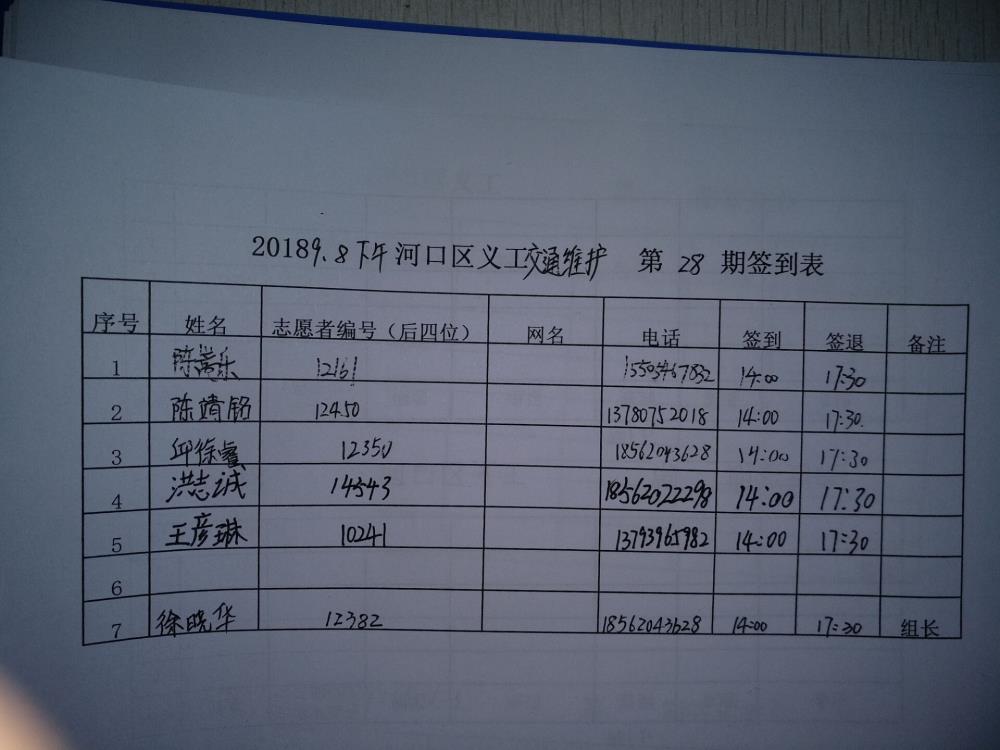 20189.8下午 河口区义工交通维护 第 28 期签到表
序号 姓名 志愿者编号（后四位） 网名 电话 签到 签退 备注
1 陈 乐 12161 14:00 17:30
2 陈靖铭 12450 13780752018 14:00 17:30
3 邱徐睿 12350 18562043628 14:00 17:30
4 洪志诚 14543 18562022298 14:00 17:30
5 王彦琳 10241 13793965982 14:00 17:30
6
7 徐晓华 12382 18562043628 14:00 17:30 组长